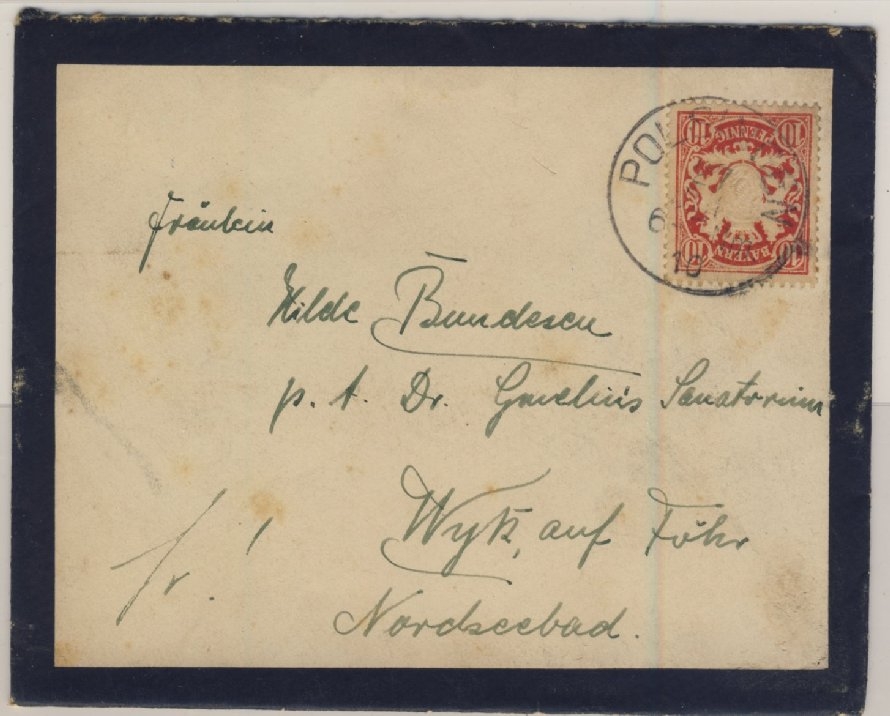 10 PFENNIG 10
10 BAYERN 10
POL
10
Fräulein
Hilde Bundesen
p. t. Dr. Gmelins Sanatorium
Wyk, auf Föhr
Nordseebad.
fr!